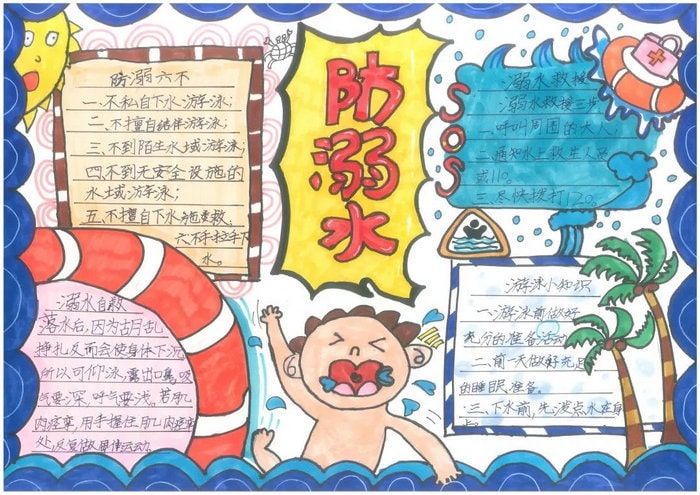 防溺水
防溺六不
一、不私自下水游泳；
二、不擅自结伴游泳；
三、不到陌生水域游泳；
四、不到无安全设施的
水域游泳；
五、不擅自下水施救；
六、不手拉手下
水。
SOS
溺水救援
溺水救援三步
一、呼叫周围的大人。
二、通知水上救生人员
或110。
三、尽快拨打120。
溺水自救
落水后，因为胡乱
挣扎反而会使身体下沉
所以可仰泳，露出口鼻，吸
气要深，呼气要浅，若肌
肉痉挛，用手握住肌肉痉挛
处，反复做屈伸运动。
游泳小知识
一、游泳前做好
充分的准备活动
二、前一天做好充足
的睡眠准备。
三、下水前，先泼点水在身